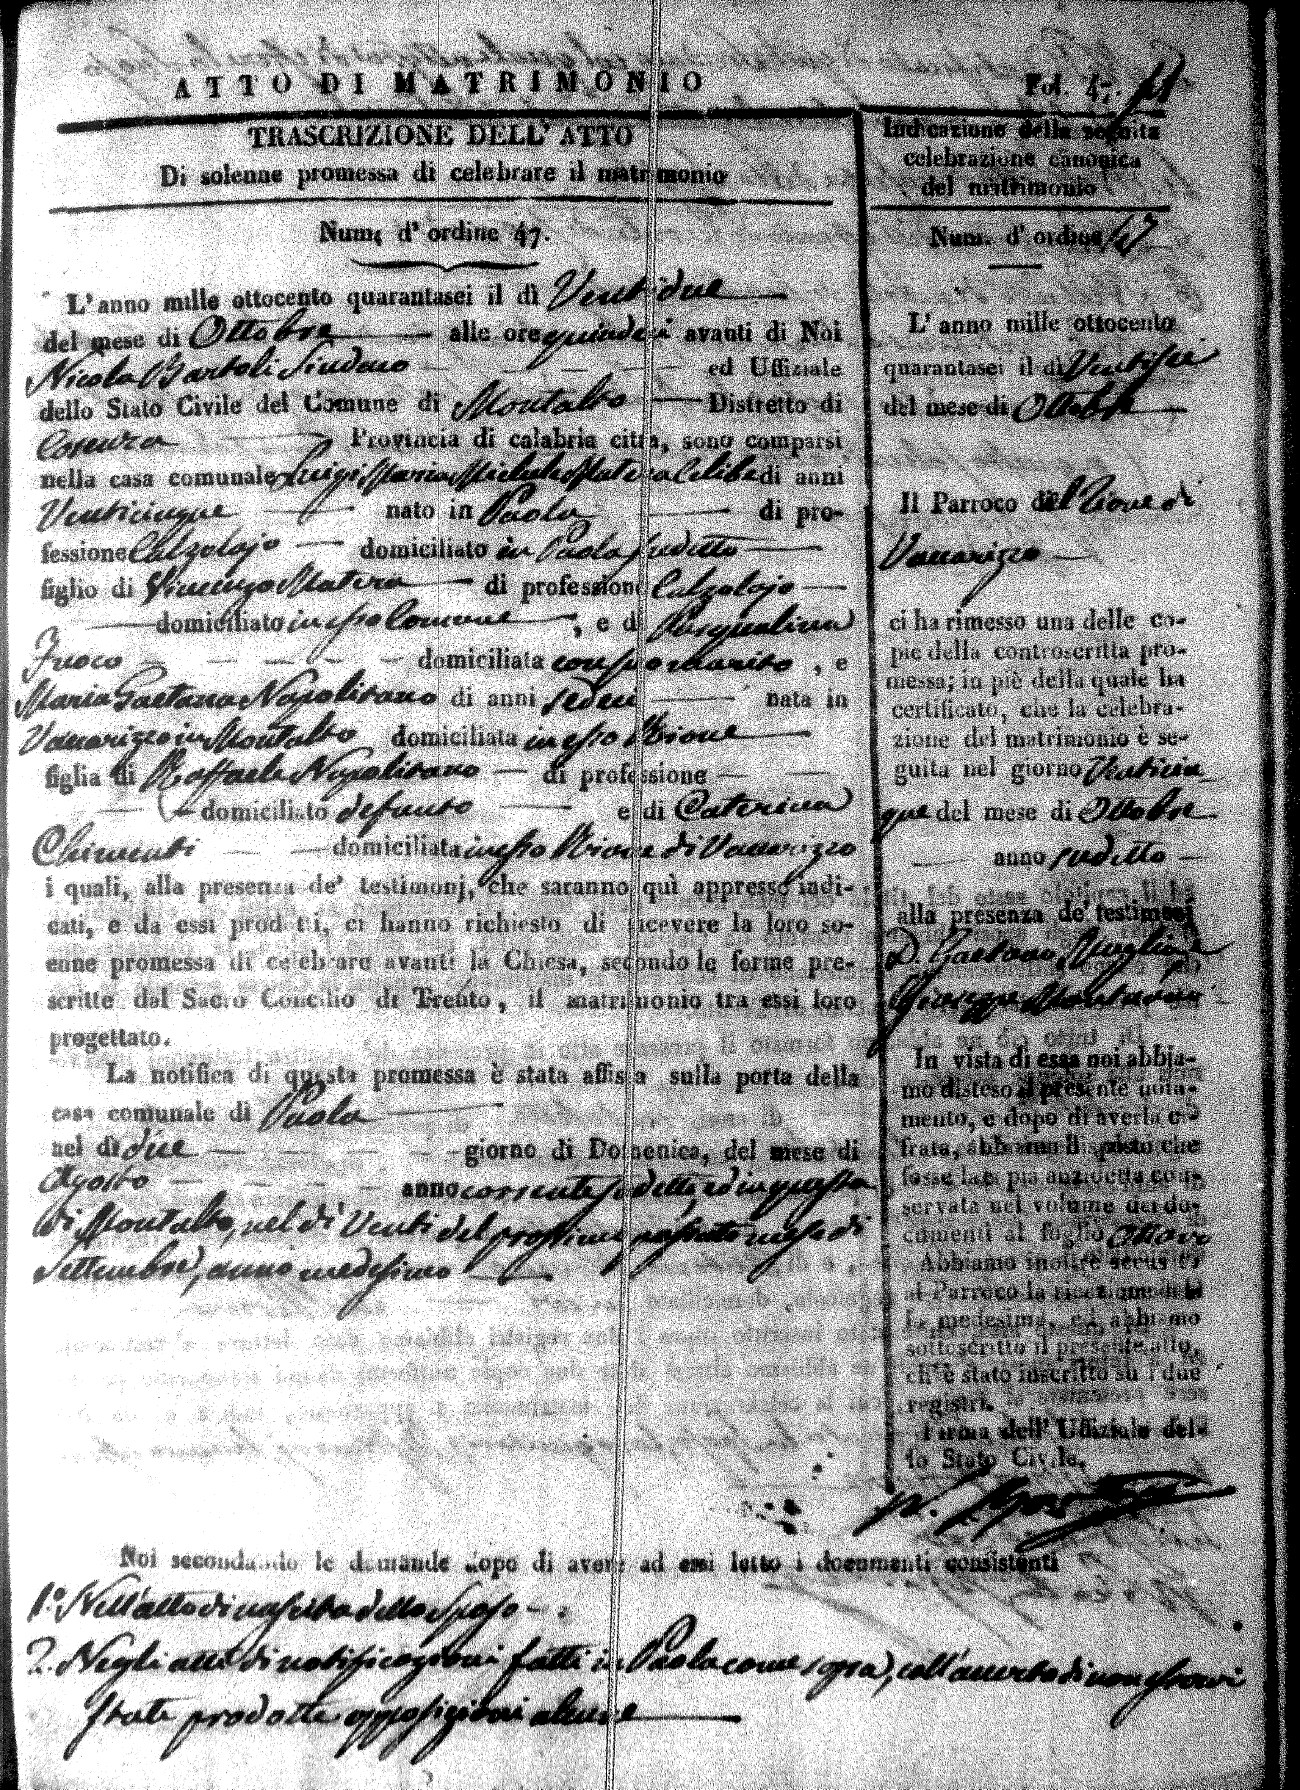 ATTO DI MATRIMONIO
Fol. 47.
TRASCRIZIONE DELL' ATTO
Di solenne promessa di celebrare il matrimonio
Num. d' ordine 47.
L'anno mille ottocento quarantasei il dì Ventidue
del mese di Ottobre alle ore quindici avanti di Noi
Nicola Bartoli Sindaco ed Uffiziale
dello Stato Civile del Comune di Montalto Distretto di
Cosenza Provincia di calabria citra, sono comparsi
nella casa comunale Luigi Maria Michele Matera Celibe di anni
Venticinque nato in Paola di pro-
fessione Calzolajo domiciliato in Paola suditto
figlio di Vincenzo Matera di professione Calzolajo
domiciliato in esso Comune, e di Pasqualina
Fuoco domiciliata con suo marito, e
Maria Gaetana Napolitano di anni sedici nata in
Vaccarizzo in Montalto domiciliata in esso Rione
figlia di Raffaele Napolitano di professione
domiciliato defunto e di Caterina
Chimenti domiciliata in esso Rione di Vaccarizzo
i quali, alla presenza de' testimonj, che saranno quì appresso indi-
cati, e da essi prodotti, ci hanno richiesto di ricevere la loro so-
enne promessa di celebrare avanti la Chiesa, secondo le forme pre-
scritte dal Sacro Concilio di Trento, il matrimonio tra essi loro
progettato.
La notifica di questa promessa è stata affissa sulla porta della
casa comunale di Paola
nel dì due giorno di Domenica, del mese di
Agosto anno corrente sudetto, ed in questa
di Montalto, nel dì Venti del prossimo passato mese di
Settembre, anno medesimo
Indicazione della seguita
celebrazione canonica
del matrimonio
Num. d' ordine 47
L' anno mille ottocento
quarantasei il dì Ventisei
del mese di Ottobre
Il Parroco del Rione di
Vaccarizzo
ci ha rimesso una delle co-
pie della controscritta pro-
messa; in piè della quale ha
certificato, che la celebra-
zione del matrimonio è se-
guita nel giorno Venticin
que del mese di Ottobre
anno suditto
alla presenza de' testimonj
D. Gaetano
Giuseppe
In vista di essa noi abbia-
mo disteso il presente nota-
mento, e dopo di averla ci-
frata, abbiamo disposto che
fosse la copia anzidetta con-
servata nel volume dei do-
cumenti al foglio ottavo
Abbiamo inoltre accusato
al Parroco la ricezione della
la medesima, ed abbiamo
sottoscritto il presente atto,
ch'è stato inscritto su i due
registri.
Firma dell' Uffiziale del-
lo Stato Civile.
Noi secondando le demande dopo di avere ad essi letto i documenti consistenti
1.º Nell'atto di nascita dello Sposo
2. Negli atti di notificazioni fatti in Paola come sopra, coll'accerto di non esservi
state prodotte opposizioni alcune